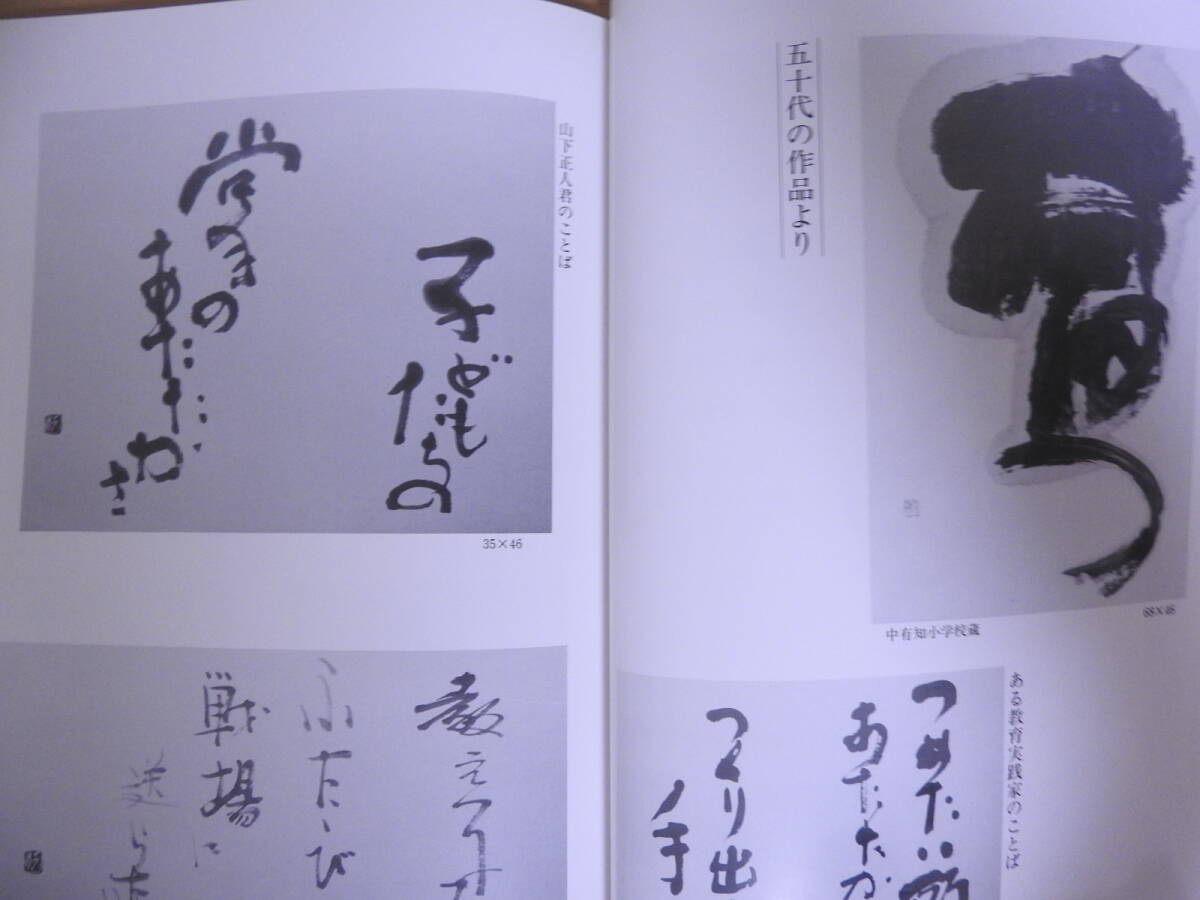 五十代の作品より
68×46
中有知小学校蔵
ある教育実践家のことば
つめたい
あたたか
つくり出
手
山下正人君のことば
子どもたちの
掌の
あたたかさ
35×46
教え子
ふたゝび
戦場に
送らな